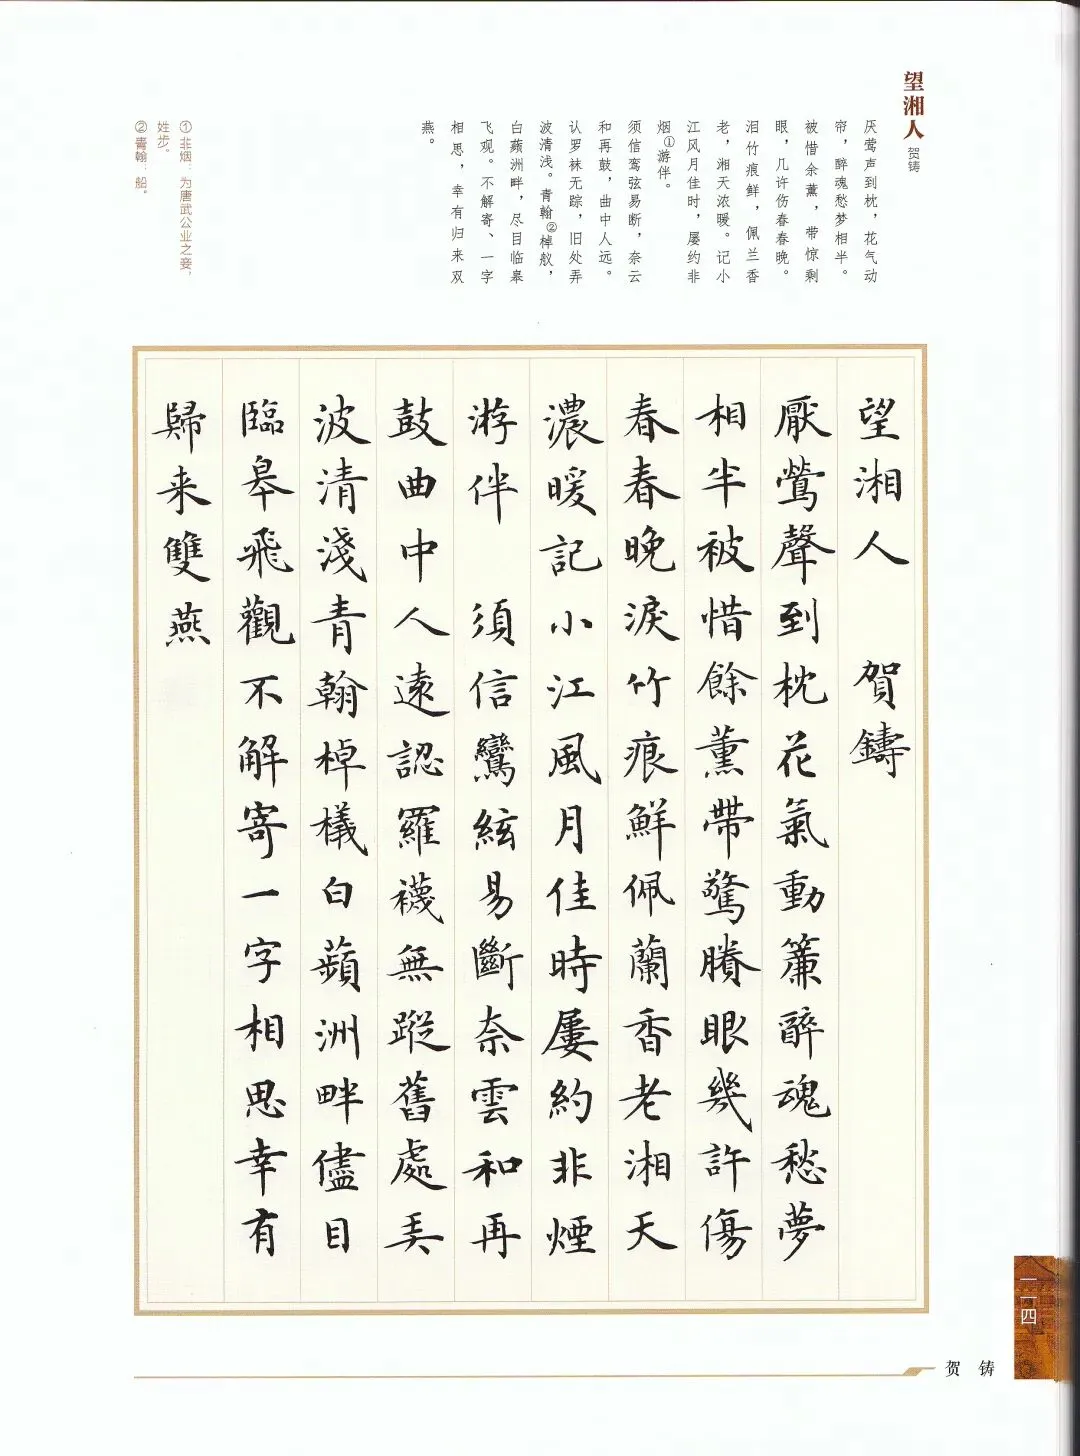 望湘人 贺铸
厌莺声到枕，花气动
帘，醉魂愁梦相半。
被惜余薰，带惊剩
眼，几许伤春春晚。
泪竹痕鲜，佩兰香
老，湘天浓暖。记小
江风月佳时，屡约非
烟①游伴。
须信鸾弦易断，奈云
和再鼓，曲中人远。
认罗袜无踪，旧处弄
波清浅。青翰②棹舣，
白蘋洲畔，尽目临皋
飞观。不解寄、一字
相思，幸有归来双
燕。
①非烟：为唐武公业之妾，
姓步。
②青翰：船。
望湘人 賀鑄
厭鶯聲到枕花氣動簾醉魂愁夢
相半被惜餘薰帶驚賸眼幾許傷
春春晚淚竹痕鮮佩蘭香老湘天
濃暖記小江風月佳時屢約非煙
游伴 須信鸞絃易斷奈雲和再
鼓曲中人遠認羅襪無蹤舊處弄
波清淺青翰棹檥白蘋洲畔儘目
臨皋飛觀不解寄一字相思幸有
歸来雙燕
一一四
贺铸